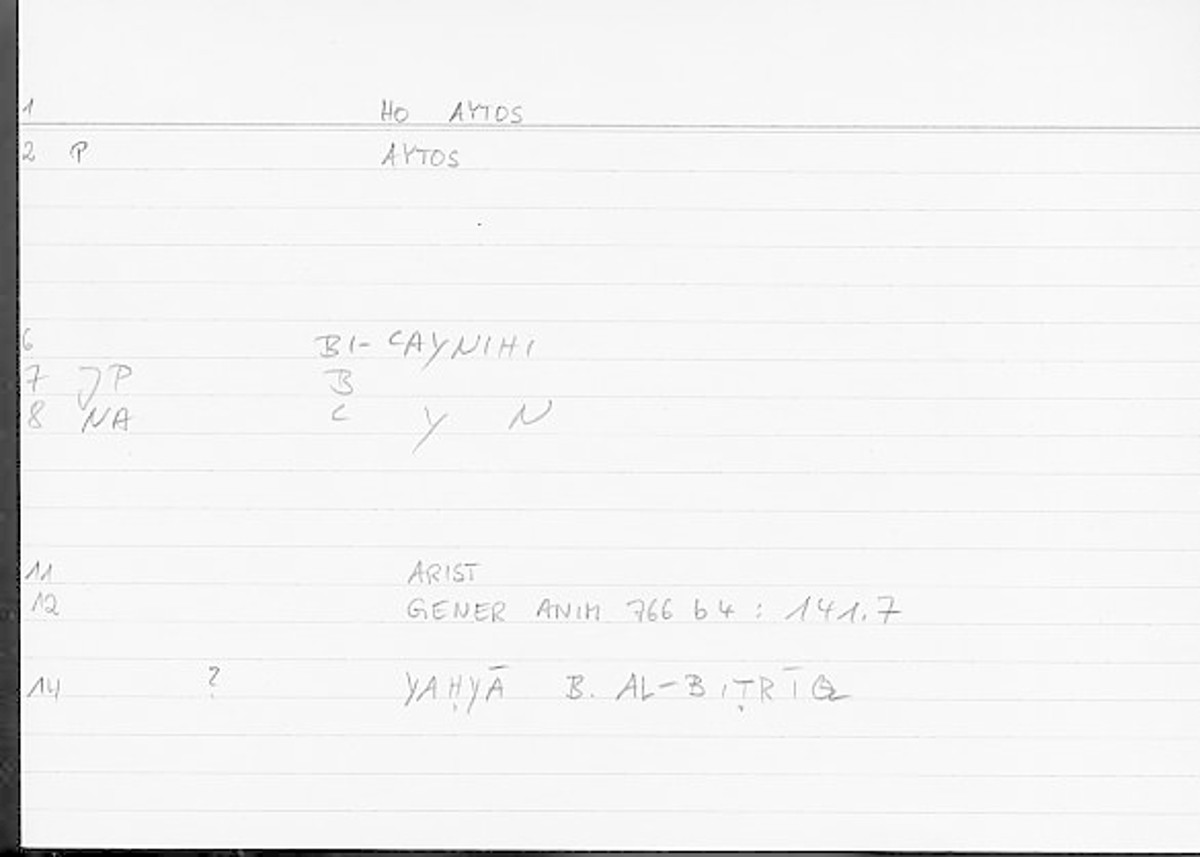 1 HO AYTOS
2 P AYTOS
6 BI-CAYNIHI
7 JP B
8 NA C Y N
11 ARIST
12 GENER ANIM 766 b 4 : 141.7
14 ? YAḤYĀ B. AL-BIṬRĪQ